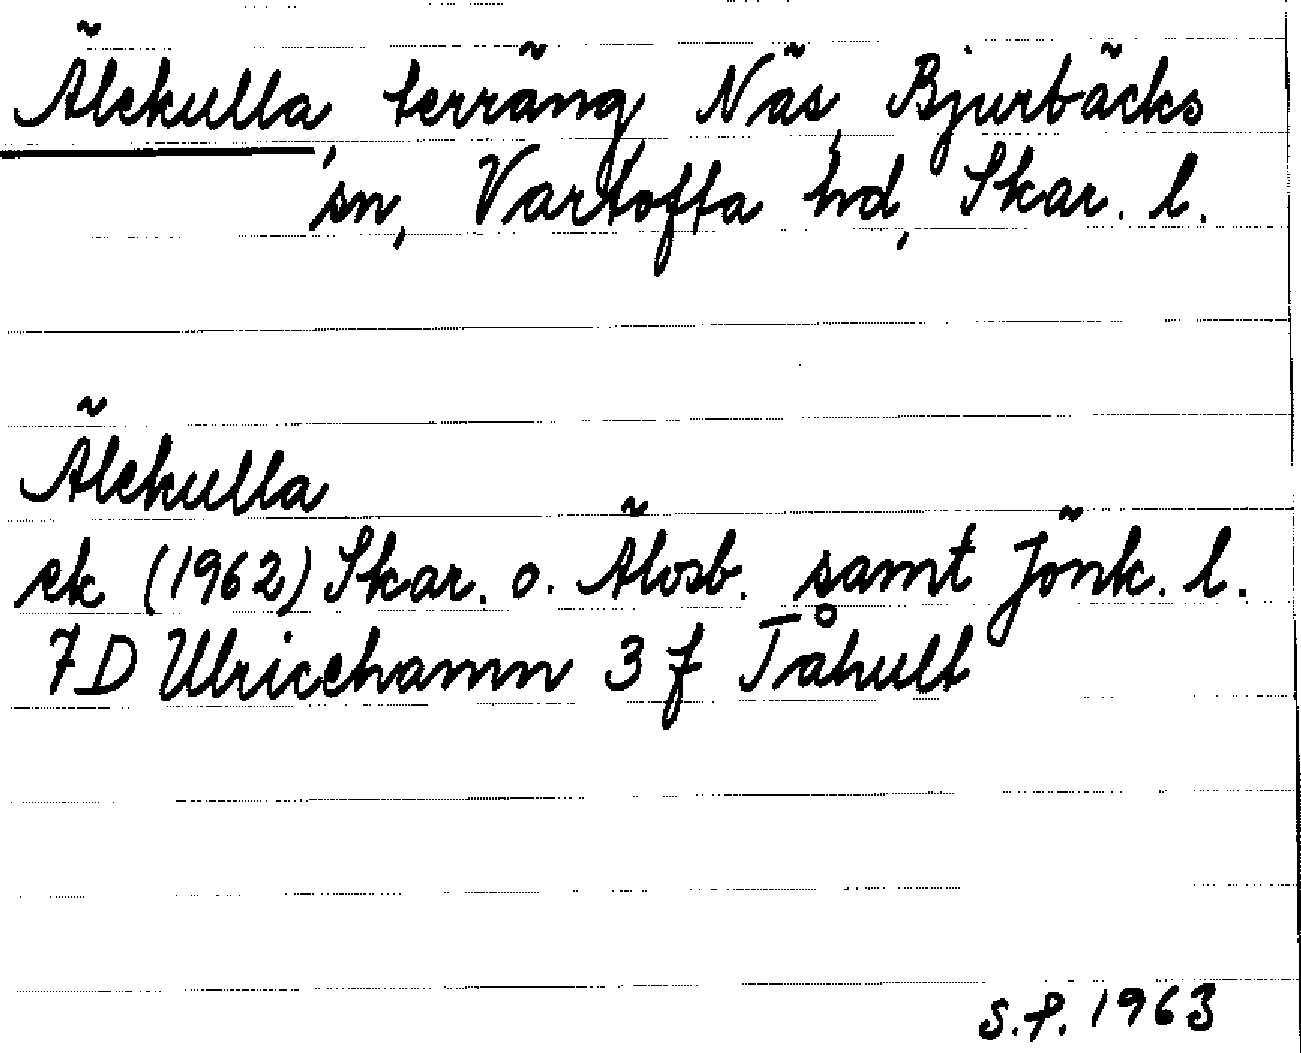 Älekulla, terräng, Näs, Bjurbäcks
sn, Vartofta hd, Skar. l.
Älekulla
ek (1962) Skar. o. Älvsb. samt Jönk. l.
7D Ulricehamn 3 f Tåhult
S.P. 1963